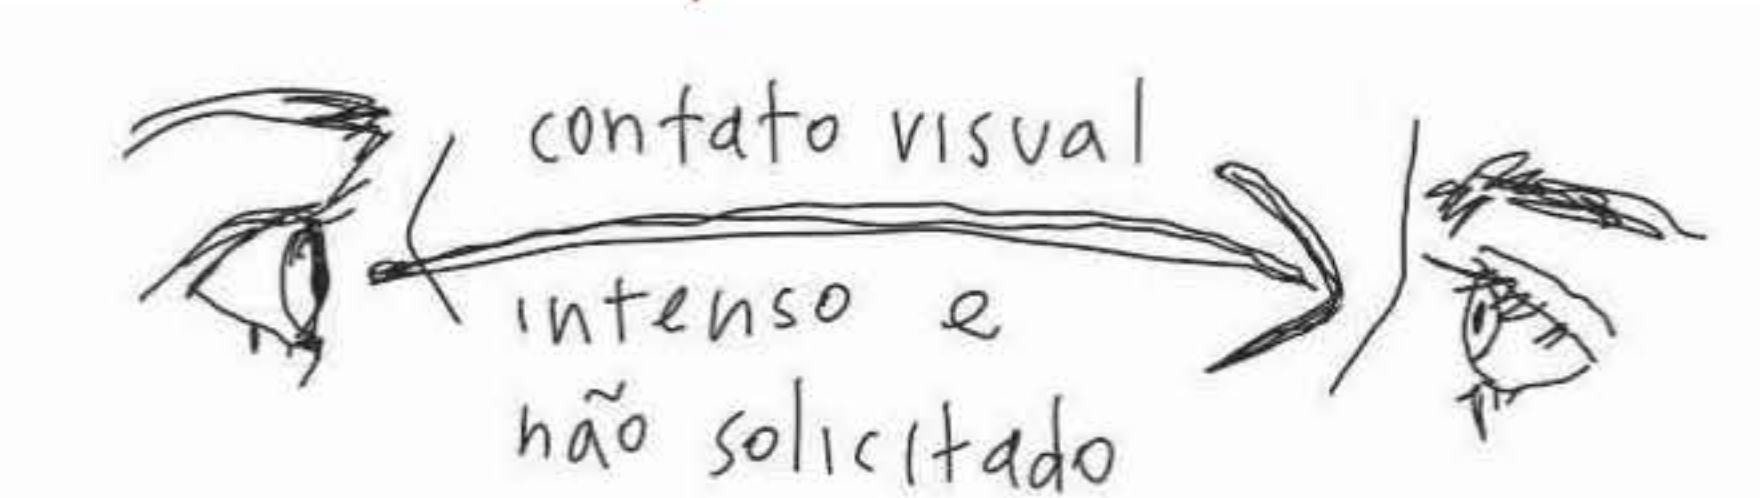 contato visual
intenso e
não solicitado